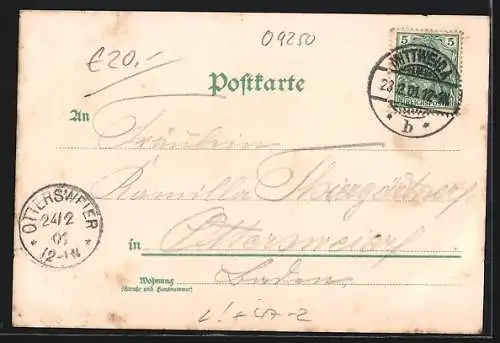 09250
€20.-
5 5
MITTWEIDA
23.2.01
* b *
REICHSPOST
Postkarte
An
Fräulein
Kamilla Thiergärtner
OTTERSWEIER
24/2
01
12-1N
in Ottersweier
Wohnung
(Straße und Hausnummer)
Baden